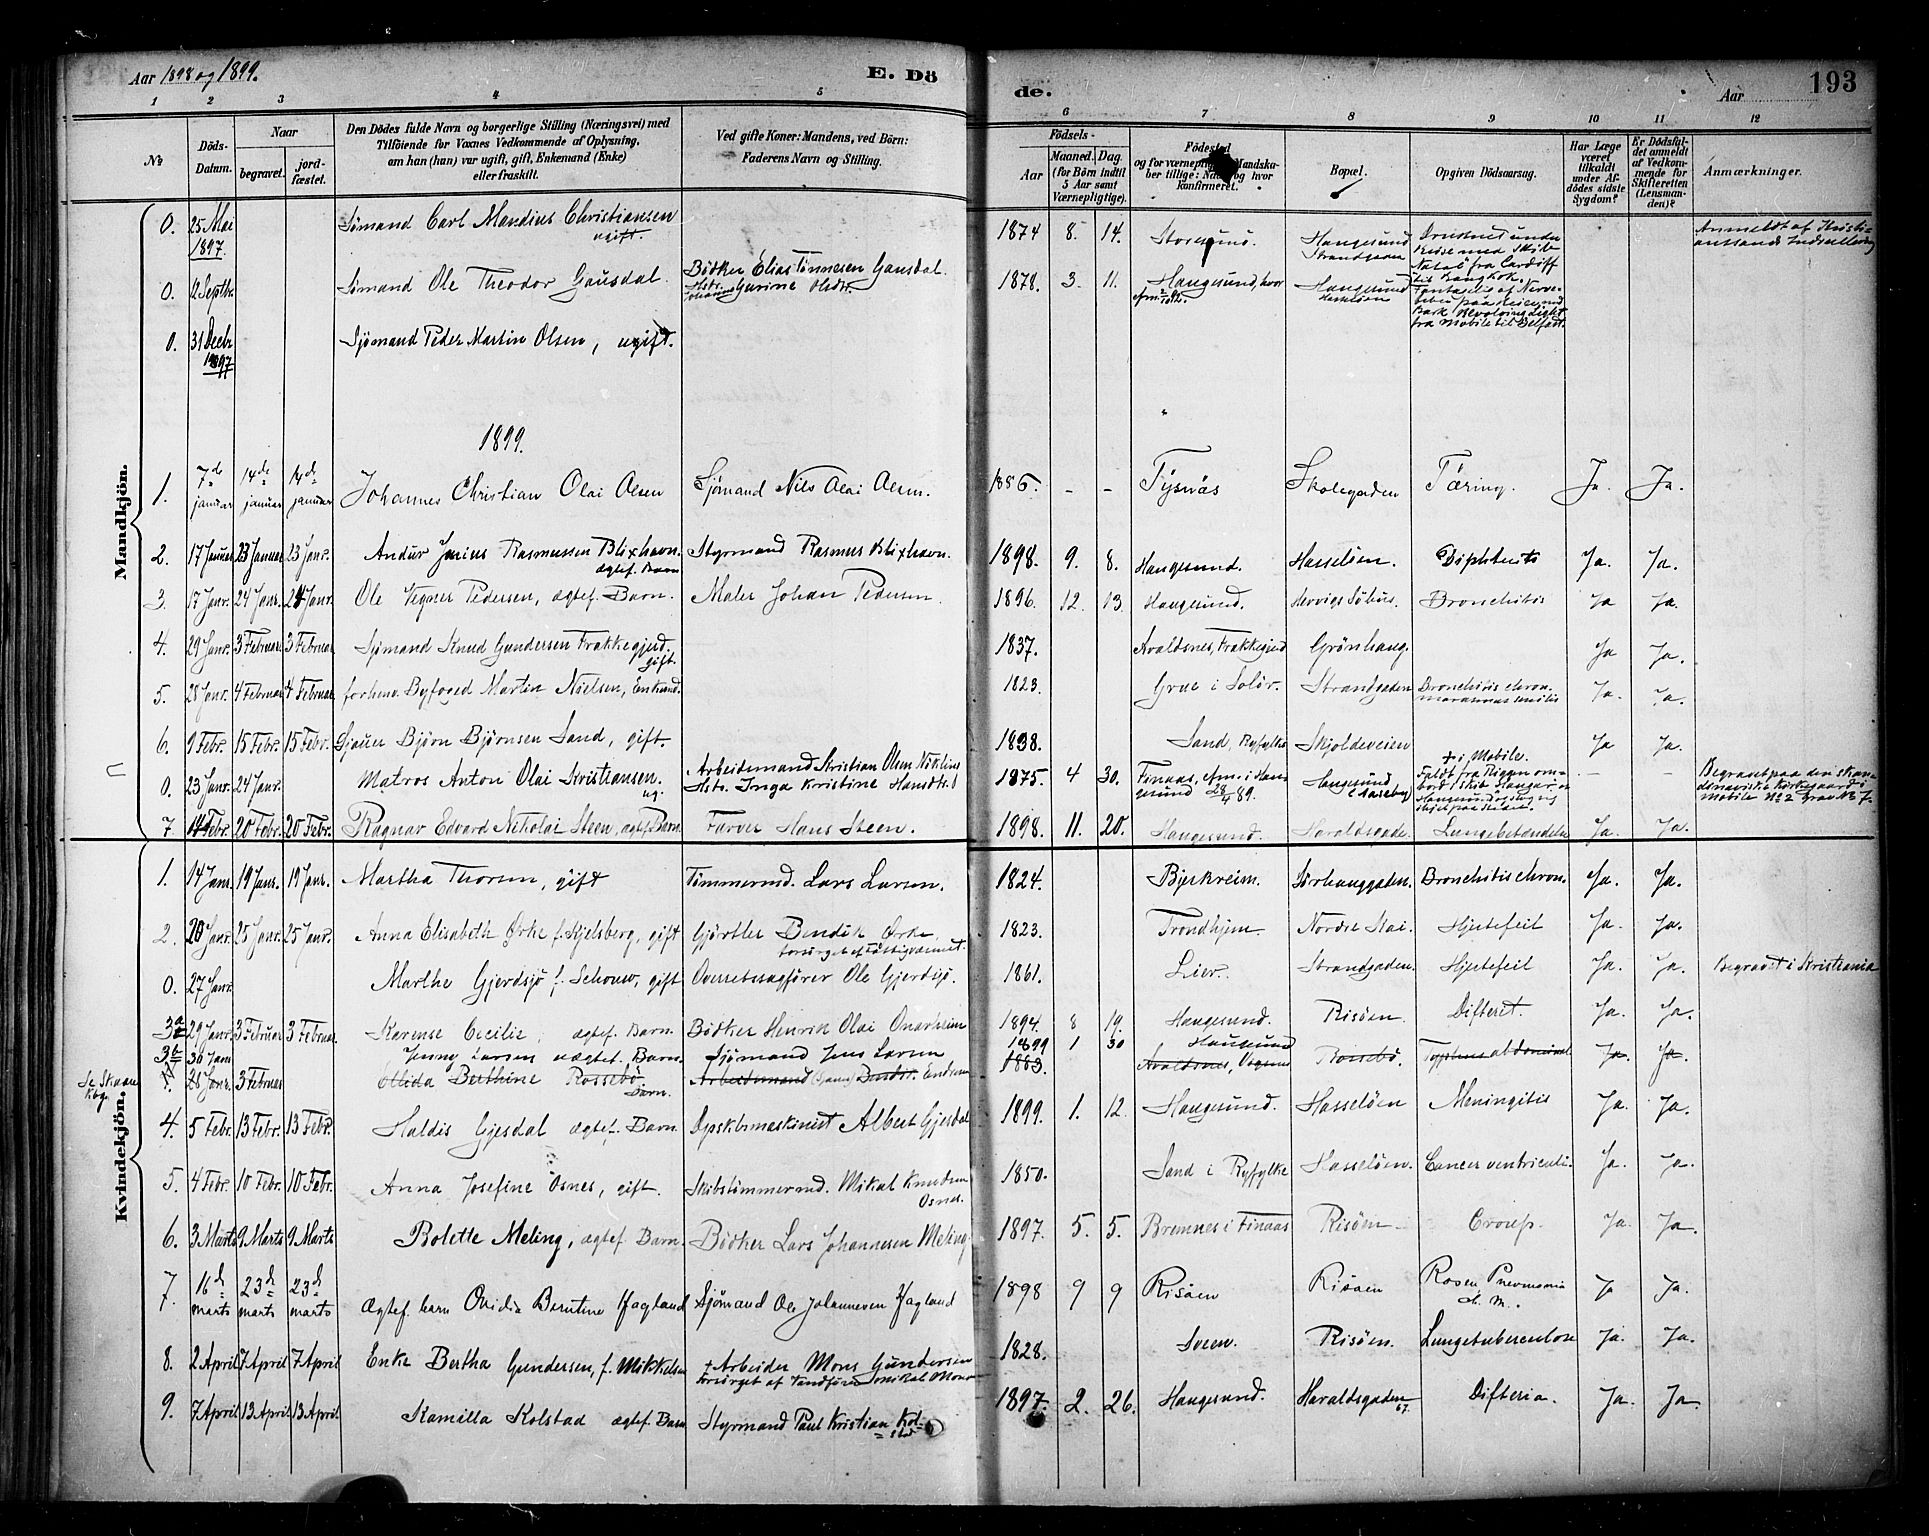 Aar 1898 og 1899.
E. Dö
de.
Aar
193
1 2 3 4 5 6 7 8 9 10 11 12
No
Döds-Datum.
Naar
begravet.
jord-fæstet.
Den Dödes fulde Navn og borgerlige Stilling (Næringsvei) med
Tilföiende for Voxnes Vedkommende af Oplysning,
om han (hun) var ugift, gift, Enkemand (Enke)
eller fraskilt.
Ved gifte Koner: Mandens, ved Börn:
Faderens Navn og Stilling.
Födsels-
Aar
Maaned.
Dag.
(for Börn indtil
5 Aar samt
Værnepligtige).
Födested
Bopæl.
Opgiven Dödsaarsag.
Har Læge
været
tilkaldt
under Af-
dödes sidste
Sygdom?
Er Dödsfal-
det anmeldt
af Vedkom-
mende for
Skifteretten
(Lensman-
den)?
Anmærkninger.
Mandkjön.
0. 25 Mai 1897. Sømand Carl Mandius Christiansen ugift. 1874 8. 14. Haugesund Strandgaden
Natal fra Cardiff
til Bangkok.
0. 12 Septbr. Sømand Ole Theodor Gausdal. Bødker Elias Tønnesen Gausdal. 1878. 3. 11. Haugesund, hvor Haugesund
fra Mobile til Belfast.
0. 31 Decbr 1897 Sjømand Peder Martin Olsen, ugift.
1899.
1. 7de januar 14de januar 14de januar Johannes Christian Olai Olsen Sjømand Nils Olai Olsen. 1886. - - Tysnæs Skolegaden Tæring. Ja. Ja.
2. 17 Januar 23 Januar 23 Janr. Rasmussen Blixhavn. ægtef. Barn Styrmand Rasmus Blixhavn. 1898. 9. 8. Haugesund. Hasseløen. Diphterits Ja. Ja.
3. 17 Janr. 24 Janr. 24 Janr. Ole Vegner Pedersen, ægtef. Barn. Maler Johan Pedersen. 1896. 12. 13. Haugesund. Bronchitis Ja Ja.
4. 29 Janr. 3 Februar 3 Februar Sjømand Knud Gundersen Frakkegjerd. gift. 1837. Avaldsnes, Frakkegjerd Grønhaug. Ja Ja.
5. 28 Janr. 4 Februar 4 Februar forhenv. Byfoged Martin Nielsen, Enkemd. 1823. Grue i Solør. Strandgaden Bronchitis chron. marasmus senilis Ja. Ja.
6. 9 Febr. 15 Febr. 15 Febr. Sjauer Bjørn Bjørnsen Sand, gift. 1838. Sand, Ryfylke Skjoldeveien Ja Ja.
0. 23 Janr. 24 Janr. Matros Anton Olai Kristiansen. ug. Arbeidsmand Kristian Olsen 1875 4 30. Finaas, i Haugesund 28/4 89. Haugesund + i Mobile. Faldt fra Riggen ombord - -
Begravet paa den skandinaviske Kirkegaard i Mobile No 2 Grav No 7.
7. 14 Febr. 20 Febr. 20 Febr. Ragnar Edvard Nikolai Steen, ægtef. Barn. Farver Hans Steen. 1898. 11. 20. Haugesund. Haraldsgade. Lungebetændelse Ja. Ja.
Kvindekjön.
1. 14 Janr. 19 Janr. 19 Janr. Martha Thorsen, gift Tømmermd. Lars Larsen. 1824. Bjerkreim. Sørhauggaden. Bronchitis chron. Ja. Ja.
2. 20 Janr. 25 Janr. 25 Janr. Anna Elisabeth Ørke f. Kjelsberg, gift Gjørtler Bendik Ørke, forsørget af Fattigvæsenet. 1823. Trondhjem. Nordre Kai. Hjertefeil Ja. Ja.
0. 27 Janr. Marthe Gjerdsjø f. Schouw, gift Overretssagfører Ole Gjerdsjø. 1861. Lier. Strandgaden. Hjertefeil Ja. Ja. Begravet i Kristiania
3a 29 Janr. 3 Februar 3 Februar. Karense Cecilie, ægtef. Barn. Bødker Henrik Olai Onarheim 1894. 8 19. Haugesund. Risøen. Difteret. Ja. Ja.
3b 30 Jan Jenny Larsen uægtef. Barn. Sjømand Jens Larsen 1899 1 30 Haugesund
28 Janr. 3 Februar Ellida Berthine Rossebø. Barn. Arbeidsmand 1883. Avaldsnes, Rossebø. Typhus abdominal. Ja. Ja.
4. 5 Febr. 13 Febr. 13 Febr. Haldis Gjesdal ægtef. Barn. Dpskibsmaskinist Albert Gjesdal 1899. 1. 12. Haugesund. Hasseløen Meningitis Ja. Ja.
5. 4 Febr. 10 Febr. 10 Febr. Anna Josefine Osnes, gift. Skibstømmermd. Mikal Knudsen Osnes. 1850. Sand i Ryfylke Hasseløen. Cancer ventriculi. Ja. Ja.
6. 3 Marts 9 Marts 9 Marts Bolette Meling, ægtef. Barn. Bødker Lars Johannesen Meling. 1897. 5. 5. Bremnes i Finaas Risøen Croup. Ja. Ja.
7. 16de marts 23de marts 23de marts Ægtef. barn Ovidia Berntine Hagland Sjømand Ole Johannesen Hagland 1898 9 9 Risøen Risøen Pneumonia Ja Ja.
8. 2 April 7 April 7 April Enke Bertha Gundersen, f. Mikkelsen + Arbeider Mons Gundersen 1828. Sveen. Risøen. Lungetuberculose Ja. Ja.
9. 7 April 13 April 13 April Kamilla Kolstad ægtef. Barn Styrmand Paul Kristian Kolstad 1897. 2. 26. Haugesund. Haraldsgaden 67. Difteria. Ja. Ja.